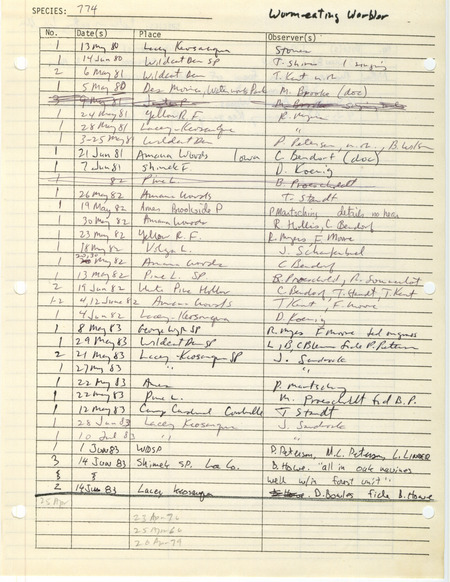 SPECIES: 774 Worm-eating Warbler
No. Date(s) Place Observer(s)
1 13 May 80 Lacey Keosauqua Stoner
1 14 Jun 80 Wildcat Den SP T. Shires 1 singing
2 6 May 81 Wildcat Den T. Kent m.ob.
1 5 May 80 Des Moines, Waterworks Park M. Brooke (doc)
9 May 81
1 24 May 81 Yellow R.F. R. Myers
1 28 May 81 Lacey-Keosauqua "
3-25 May 81 Wildcat Den P. Petersen, m.ob., B. Wilson
1 21 Jun 81 Amana Woods Iowa C. Bendorf (doc)
1 7 Jun 81 Shimek F. D. Koenig
1 82 Pine L. B. Proescholdt
1 26 May 82 Amana Woods T. Staudt
1 19 May 82 Ames Brookside P P Martsching details no hear
1 30 May 82 Amana Woods R Hollis, C Bendorf
1 23 May 82 Yellow R. F. R. Myers F Moore
1 18 May 82 Volga L. J. Schaufenbuel
20,30 May 82 Amana Woods C Bendorf
1 13 May 82 Pine L. SP B. Proescholdt, R.
2 19 Jun 82 Pine Hollow C Bendorf, T. Staudt, T. Kent
1-2 4,12 June 82 Amana Woods T Kent, F. Moore
1 4 Jun 82 Lacey-Keosauqua D. Koenig
1 8 May 83 George Wyth SP R. Myers F Moore
1 29 May 83 Wildcat Den SP L, B, C Blevins fide P. Petersen
2 21 May 83 Lacey-Keosauqua SP J. Sandrock
1 27 May 83 " "
1 22 May 83 Ames P. Martsching
1 22 May 83 Pine L. M. Proescholdt fid B.P.
1 12 May 83 Camp Cardinal Coralville T Staudt
1 28 Jun 83 Lacey Keosauqua J. Sandrock
1 10 Jul 83 " "
1 1 Jun 83 WDSP D. Petersen, M.L. Petersen, L. LINDER
3 14 Jun 83 Shimek SP. Lee Co. B. Howe. "all in oak ravines
well w/in forest unit"
2 14 Jun 83 Lacey Keosauqua D. Bowles fide B. Howe
25 Apr
23 Apr 76
25 Apr 64
20 Apr 79